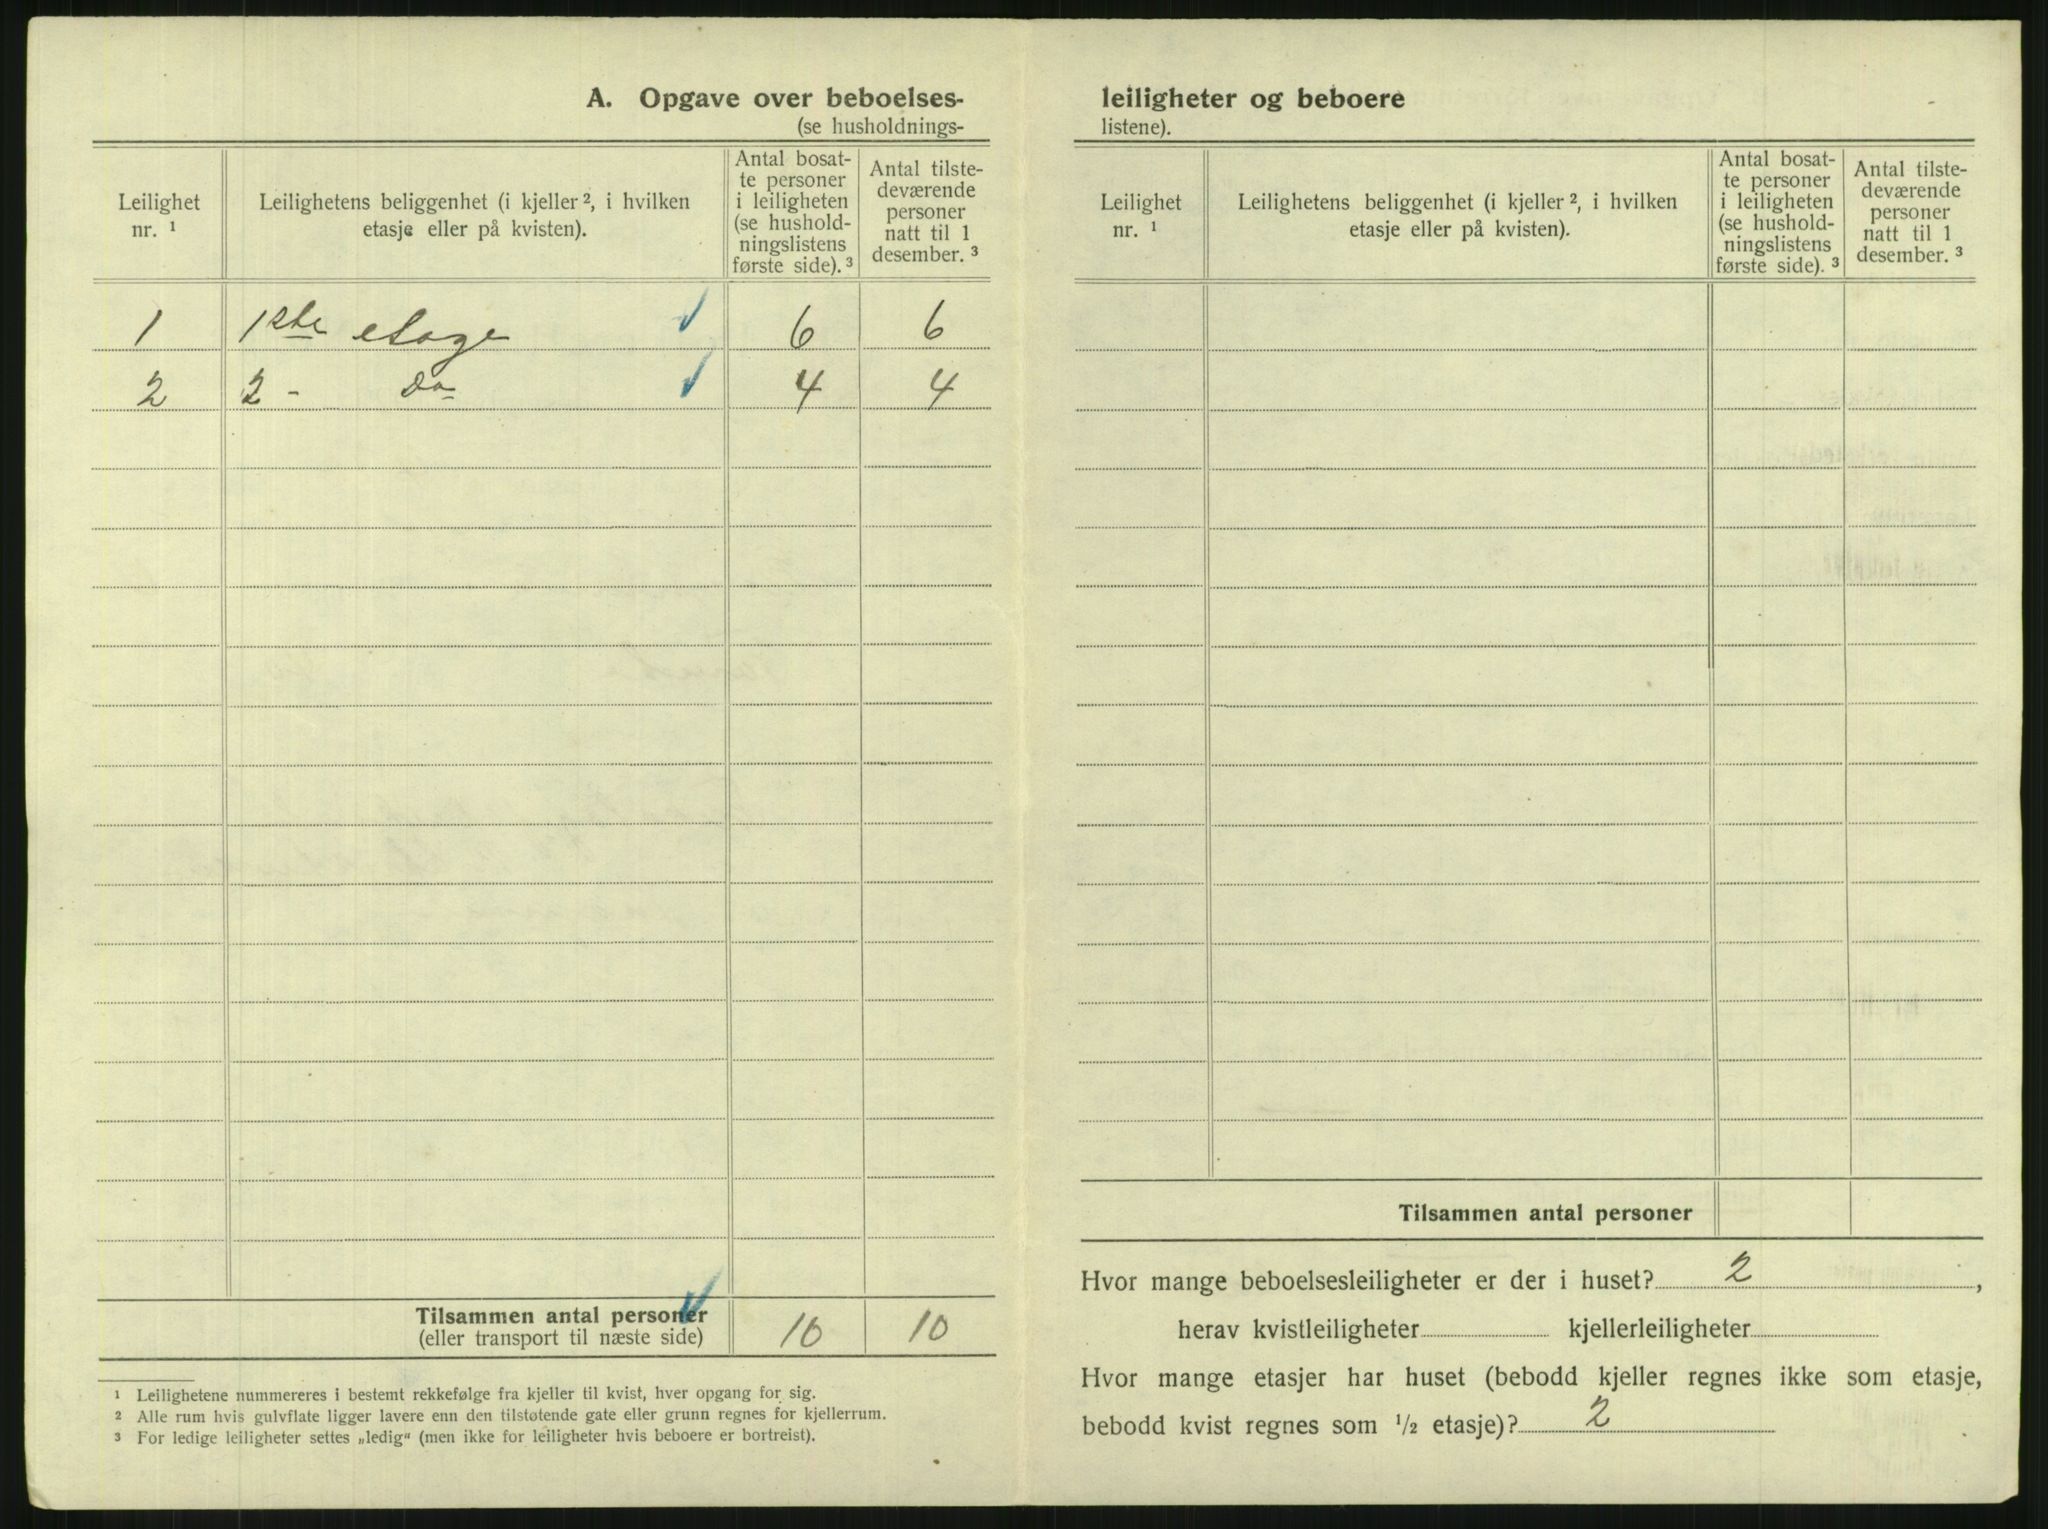 A. Opgave over beboelses-
(se husholdnings-
Leilighet nr. ¹
Leilighetens beliggenhet (i kjeller ², i hvilken
etasje eller på kvisten).
Antal bosat-
te personer
i leiligheten
(se hushold-
ningslistens
første side). ³
Antal tilste-
deværende
personer
natt til 1
desember. ³
1 1ste etage 6 6
2 2 - Do 4 4
Tilsammen antal personer 10 10
(eller transport til næste side)
¹ Leilighetene nummereres i bestemt rekkefølge fra kjeller til kvist, hver opgang for sig.
² Alle rum hvis gulvflate ligger lavere enn den tilstøtende gate eller grunn regnes for kjellerrum.
³ For ledige leiligheter settes „ledig“ (men ikke for leiligheter hvis beboere er bortreist).
leiligheter og beboere
listene).
Leilighet
nr. ¹
Leilighetens beliggenhet (i kjeller ², i hvilken
etasje eller på kvisten).
Antal bosat-
te personer
i leiligheten
(se hushold-
ningslistens
første side). ³
Antal tilste-
deværende
personer
natt til 1
desember. ³
Tilsammen antal personer
Hvor mange beboelsesleiligheter er der i huset? 2 ,
herav kvistleiligheter kjellerleiligheter
Hvor mange etasjer har huset (bebodd kjeller regnes ikke som etasje,
bebodd kvist regnes som ½ etasje)? 2